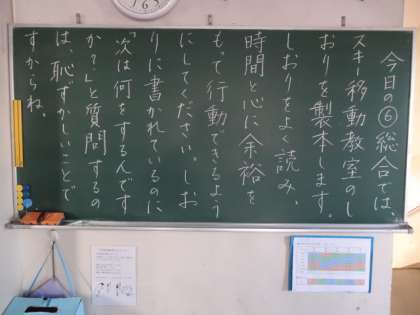 今日の⑥総合では、
スキー移動教室のし
おりを製本します。
しおりをよく読み、
時間と心に余裕を
もって行動できるよう
にしてください。しお
りに書かれているのに
「次は何をするんです
か？」と質問するの
は、恥ずかしいことで
すからね。